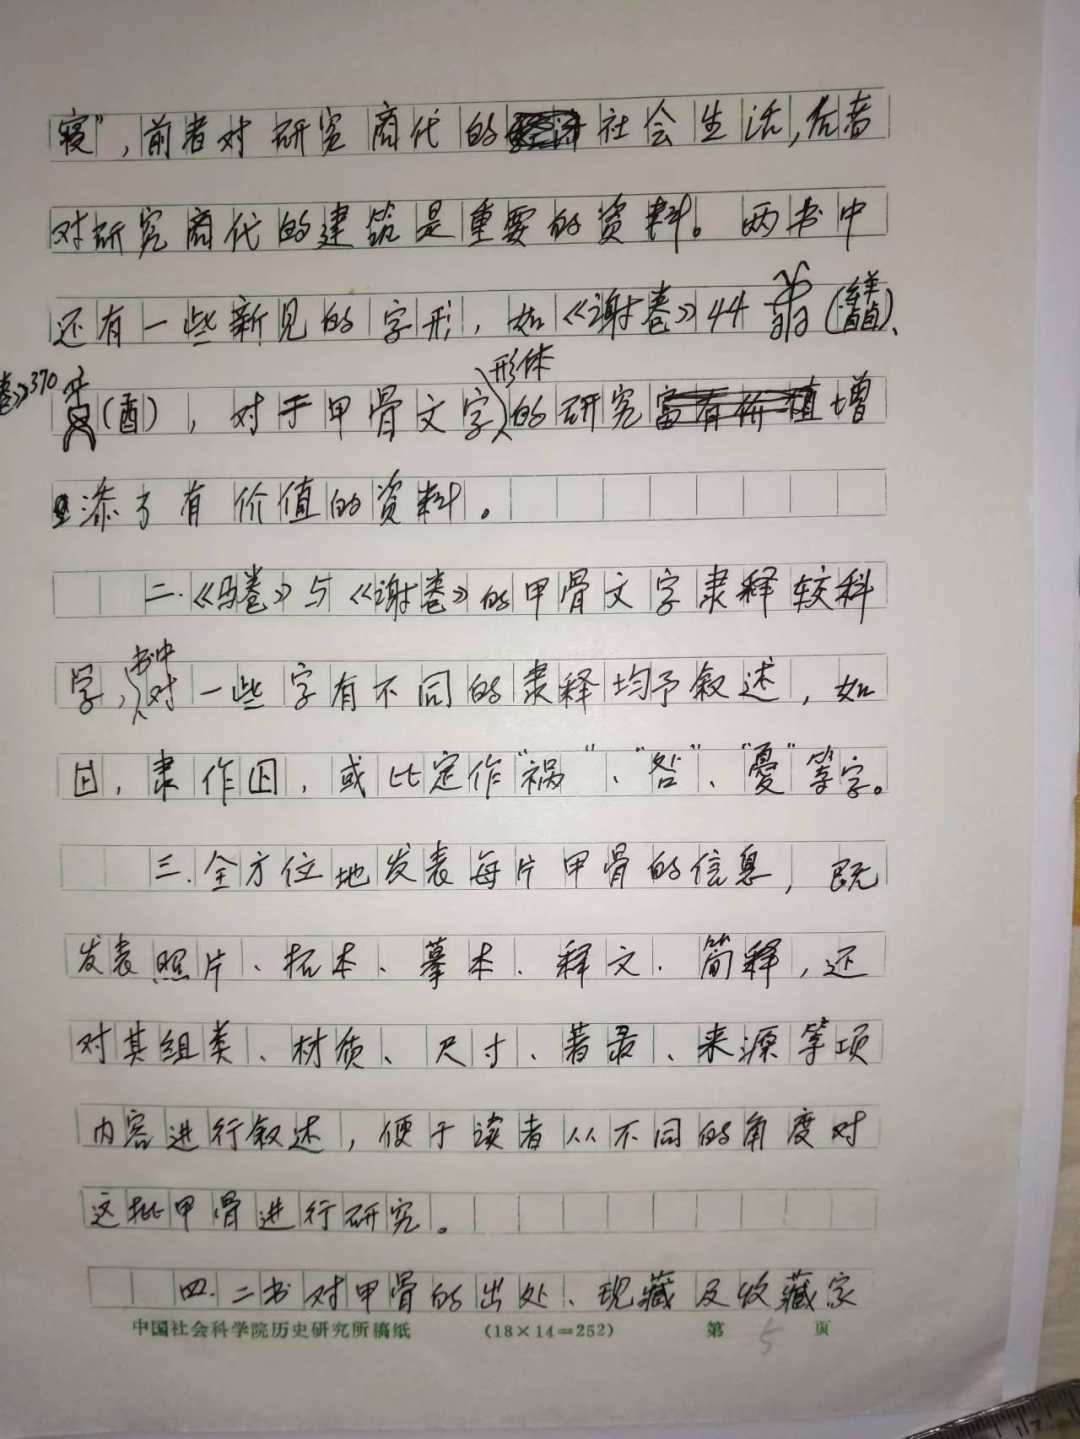 寝”，前者对研究商代的社会生活，后者
对研究商代的建筑是重要的资料。两书中
还有一些新见的字形，如《谢卷》44
卷》370（酉），对于甲骨文字形体的研究富有价值增
添了有价值的资料。
二.《马卷》与《谢卷》的甲骨文字隶释较科
学，书中对一些字有不同的隶释均予叙述，如
，隶作，或比定作“祸”、“咎”、“憂”等字。
三.全方位地发表每片甲骨的信息，既
发表照片、拓本、摹本、释文、简释，还
对其组类、材质、尺寸、著录、来源等项
内容进行叙述，便于读者从不同的角度对
这批甲骨进行研究。
四.二书对甲骨的出处、现藏及收藏家
中国社会科学院历史研究所稿纸 （18×14=252） 第 5 页